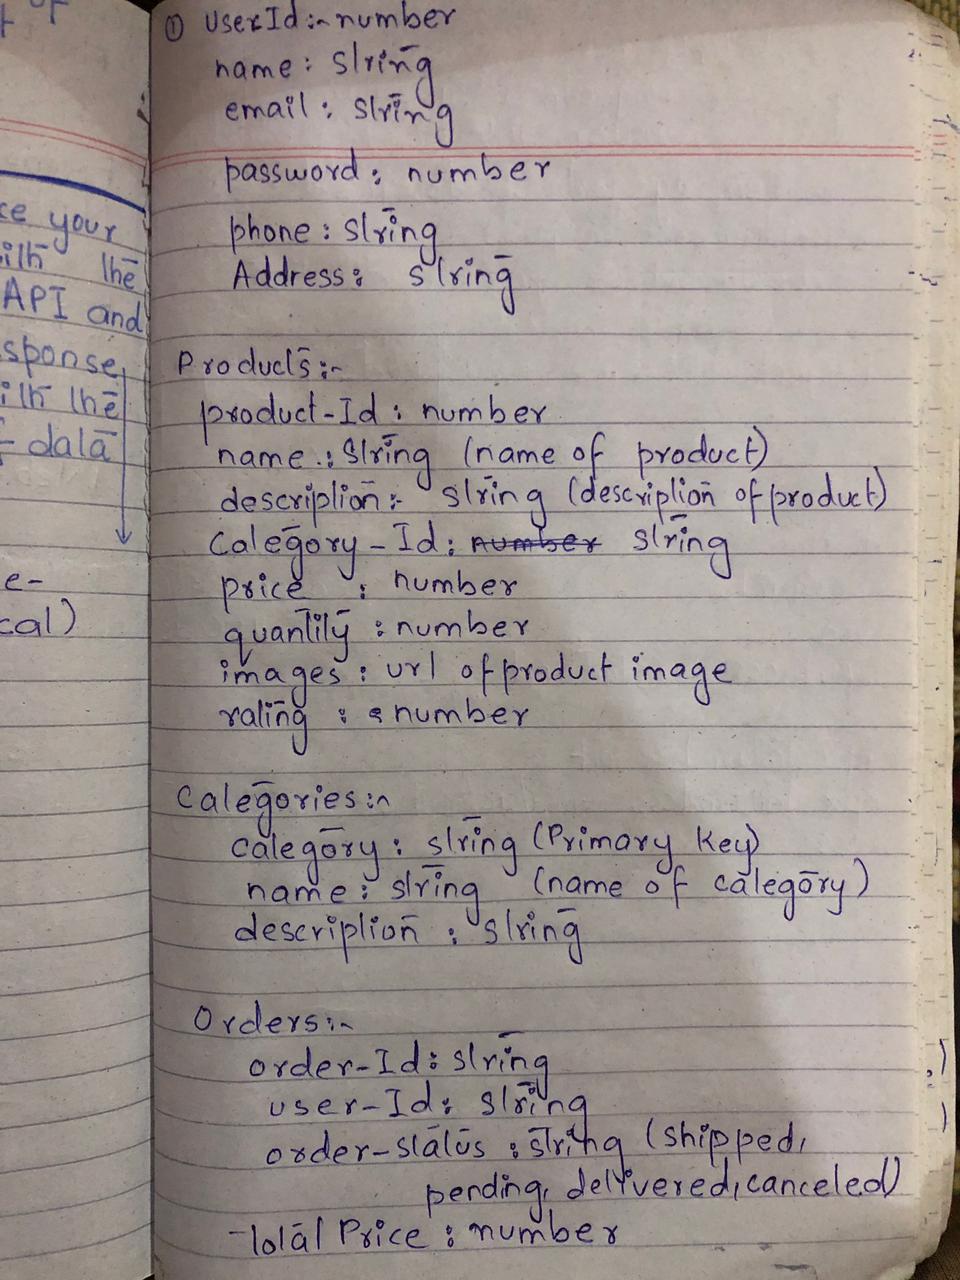 ① userId:- number
name: string
email: string
password: number
phone: string
Address: string
Products:-
product-Id: number
name.: string (name of product)
description:- string (description of product)
category-Id: number string
price : number
quantity : number
images : url of product image
rating : number
Categories:-
category: string (Primary Key)
name: string (name of category)
description : string
Orders:-
order-Id: string
user-Id: string
order-status : string (shipped,
pending, delivered, canceled)
Total Price : number
your
the
API and
the
data